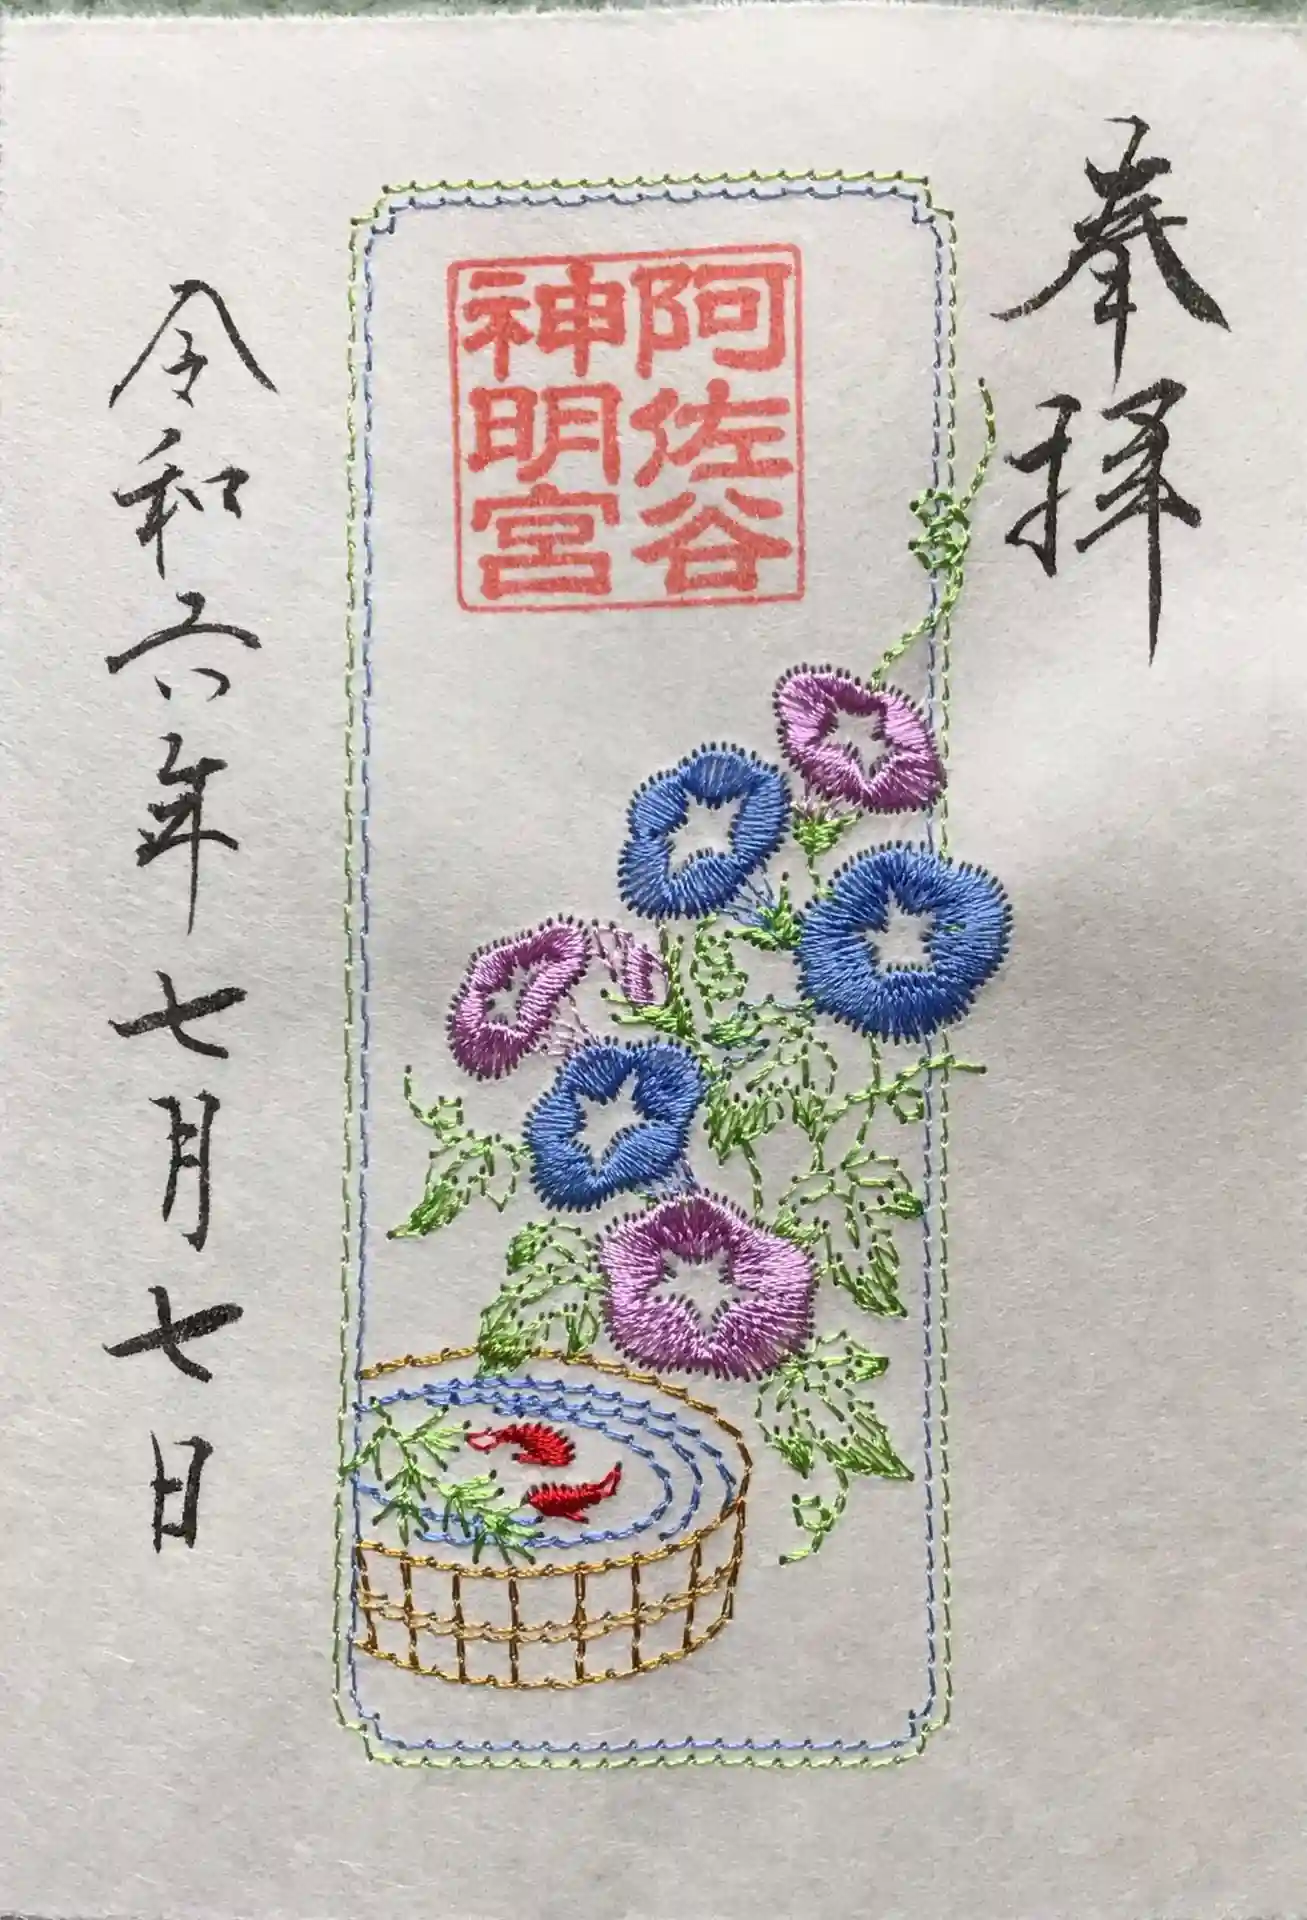 奉拝
阿佐谷
神明宮
令和六年七月七日